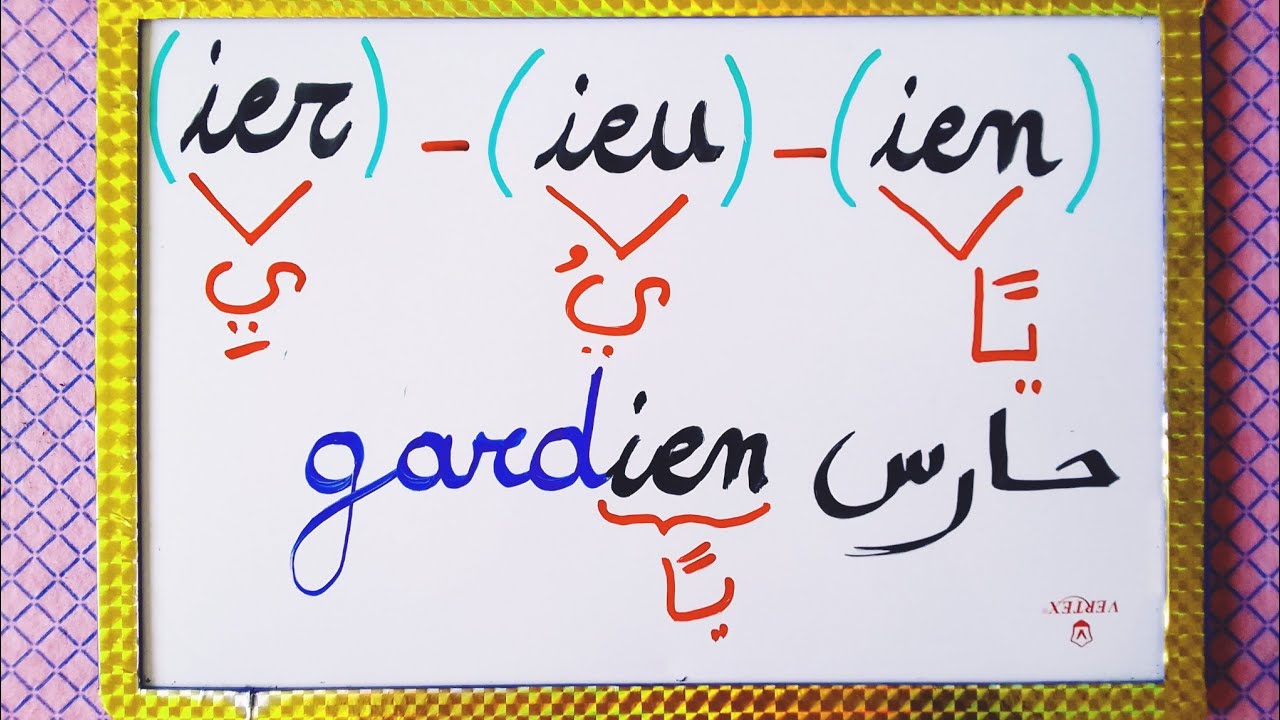 (ier) - (ieu) - (ien)
يِّ يُ يًا
gardien حارس
يًا
VERTEX